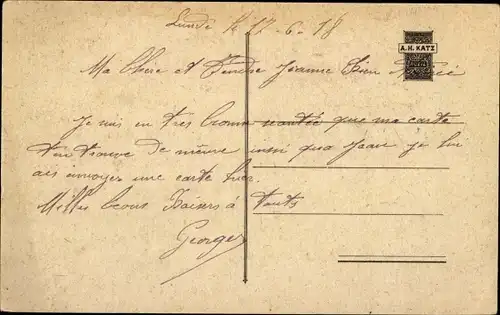 Lundi le 17-6-18
A.H. KATZ
Ma Chère et Tendre Jeanne Bien Aimée
Je suis en très bonne santée que ma carte
t'en trouve de même ainsi qua Jean je lui
ais envoyez une carte hier.
Milles Bons Baisers à touts
Georges